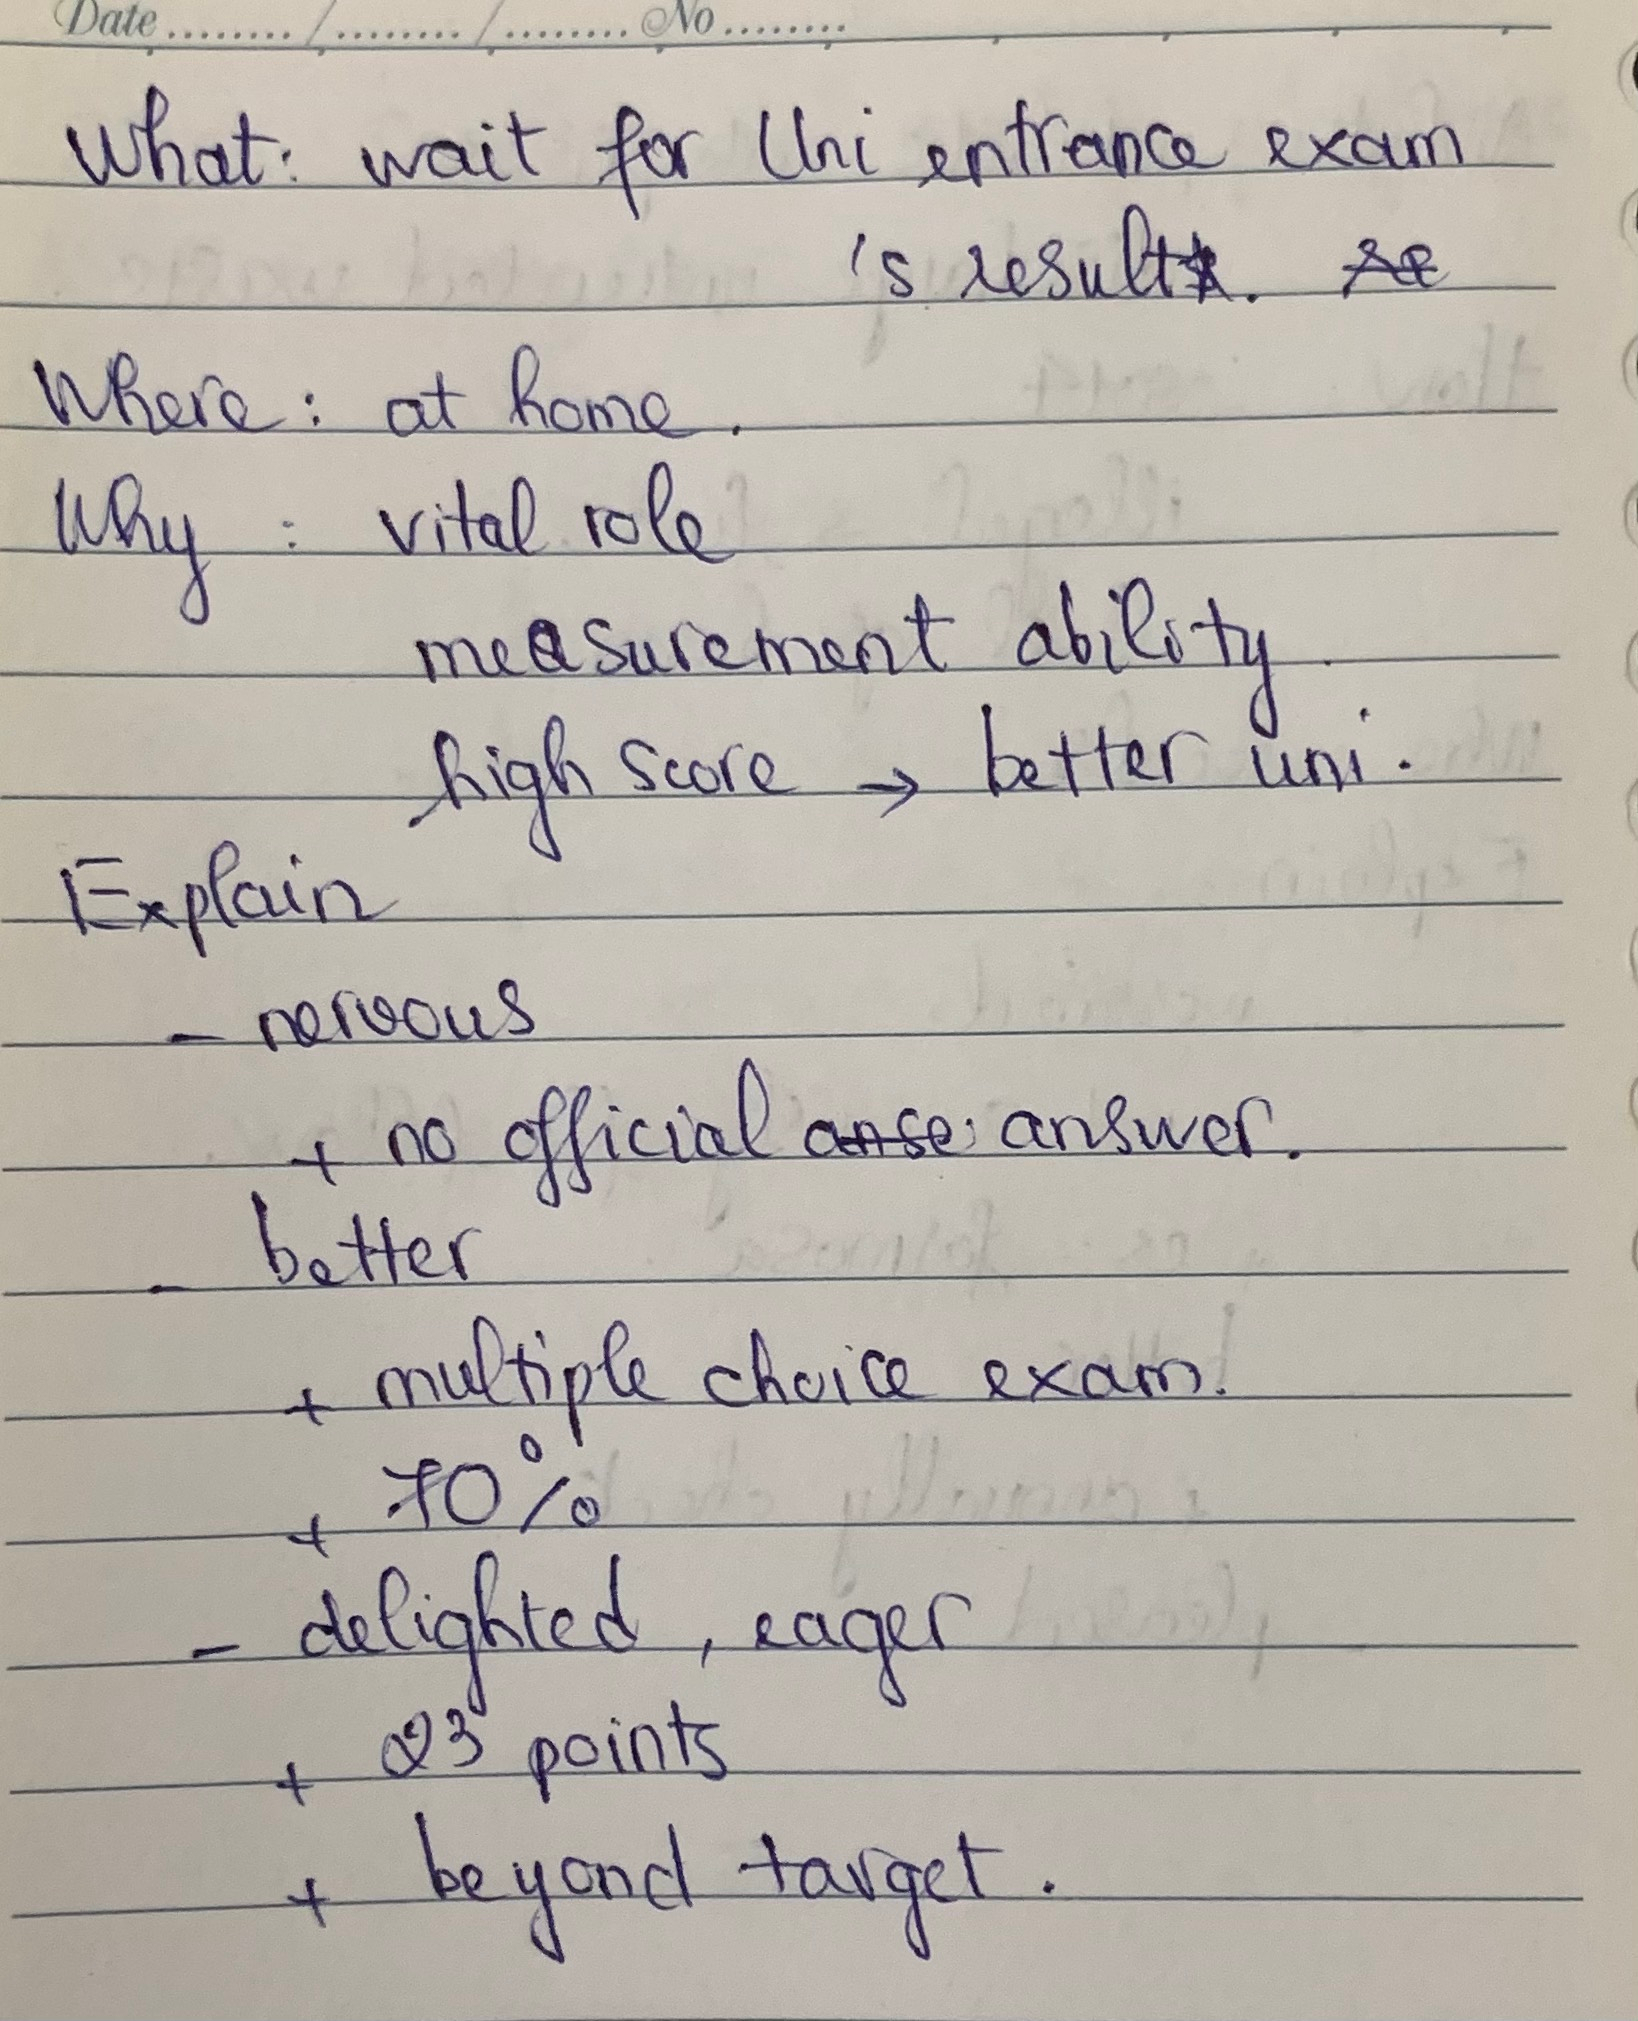 Date ......../......../........ No ........
What: wait for Uni entrance exam
's result.
Where: at home.
Why : vital role
measurement ability.
high score → better uni.
Explain
- nervous
+ no official answer.
- better
+ multiple choice exam.
+ 70%
- delighted, eager
+ 23 points
+ beyond target.